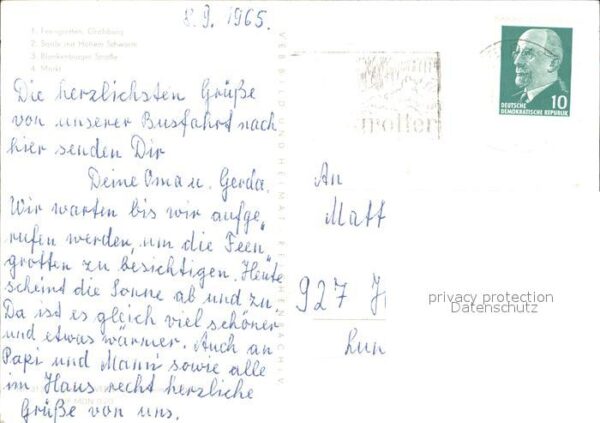 8.9.1965.
1. Feengrotten, Gralsburg
2. Saale mit Hohem Schwarm
3. Blankenburger Straße
4. Markt
Die herzlichsten Grüße
von unserer Busfahrt nach
hier senden Dir
Deine Oma u. Gerda.
Wir warten bis wir aufge„
rufen werden, um die Feen„
grotten zu besichtigen. Heute
scheint die Sonne ab und zu.
Da ist es gleich viel schöner
und etwas wärmer. Auch an
Papi und Mami sowie alle
im Haus recht herzliche
Grüße von uns.
VEB BILD UND HEIMAT REICHENBACH I V
DEUTSCHE
DEMOKRATISCHE REPUBLIK
10
An
Matt
927
privacy protection
Datenschutz